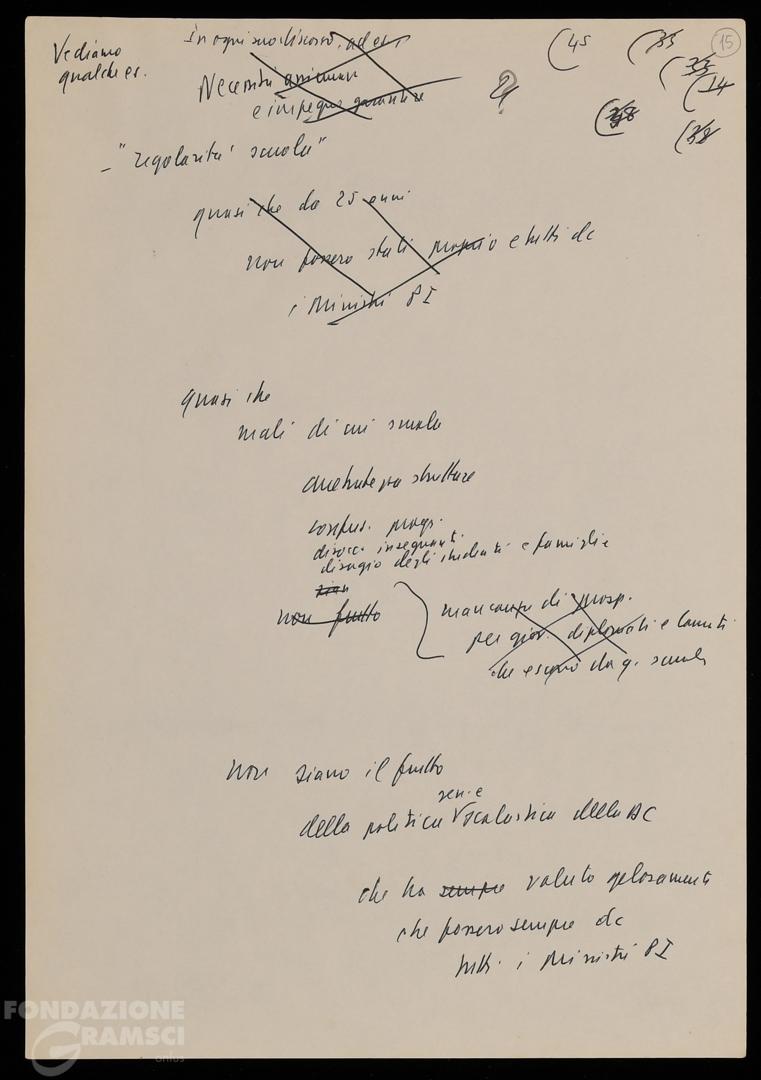 Vediamo
qualche es.
in ogni suo discorso, ad es.
Necessità
e impegno garantire
2
(45
(33
(33
(14
(38
(38
15
- "regolarità scuola"
quasi che da 25 anni
non fossero stati proprio e tutti dc
i Ministri PI
quasi che
mali di cui scuola
strutture
confus. progr.
disocc. insegnanti
disagio degli studenti e famiglie
non frutto
mancanza di prosp.
per giov. diplomati e laureati
che escono da q. scuola
non siano il frutto
della politica scolastica della DC
che ha sempre voluto gelosamente
che fossero sempre dc
tutti i Ministri PI
FONDAZIONE
GRAMSCI
onlus